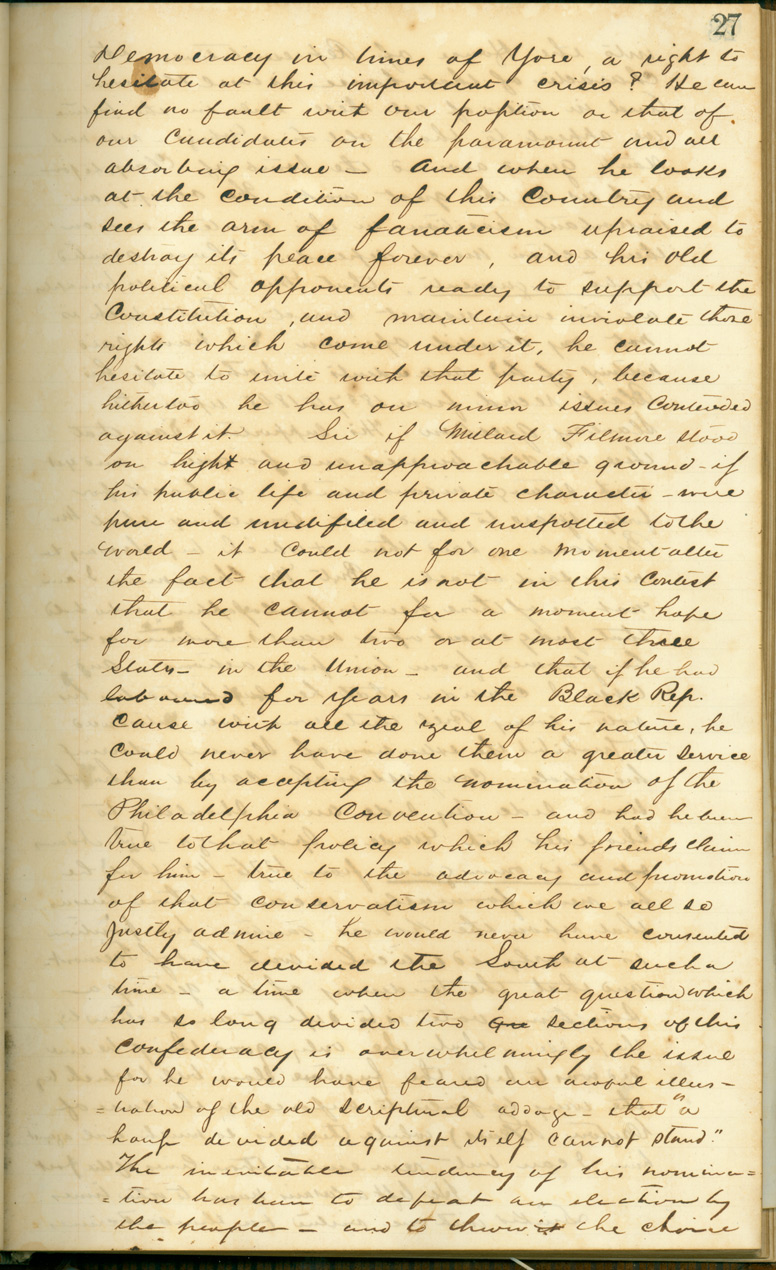 27
Democracy in times of Yore, a right to
hesitate at this important crisis? He can
find no fault with our position or that of
our Candidates on the paramount and all
absorbing issue – And when he looks
at the condition of this Country and
sees the arm of fanaticism upraised to
destroy its peace forever, and his old
political opponents ready to support the
Constitution, and maintain inviolate those
rights which come under it, he cannot
hesitate to unite with that party, because
hithertoo he has on minor issues Contended
against it. Sir if Millard Filmore stood
on hight and unapproachable ground – if
his public life and private character – were
pure and undifiled and unspotted to the
world – it could not for one moment alter
the fact that he is not in this Contest
that he cannot for a moment hope
for more than two or at most three
States – in the Union – and that if he had
laboured for years in the Black Rep.
cause with all the zeal of his nature, he
could never have done them a greater service
than by accepting the nomination of the
Philadelphia Convention – and had he been
true to that policy which his friends claim
for him – true to the advocacy and promotion
of that conservatism which we all so
justly admire – he would never have consented
to have devided the South at such a
time – a time when the great question which
has so long divided two sections of this
confederacy is overwhelmingly the issue
for he would have feared an awful illus–
=tration of the old scriptural addage – that "a
house devided against itself cannot stand."
The inevitable tendency of his nomina=
=tion has been to defeat an election by
the people – and to throw the choice